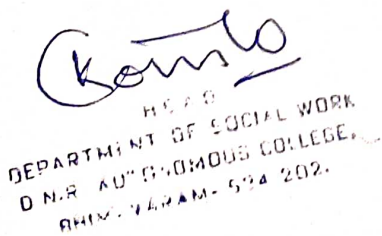 HEAD
DEPARTMENT OF SOCIAL WORK
D.N.R AUTONOMOUS COLLEGE,
BHIMAVARAM- 534 202.